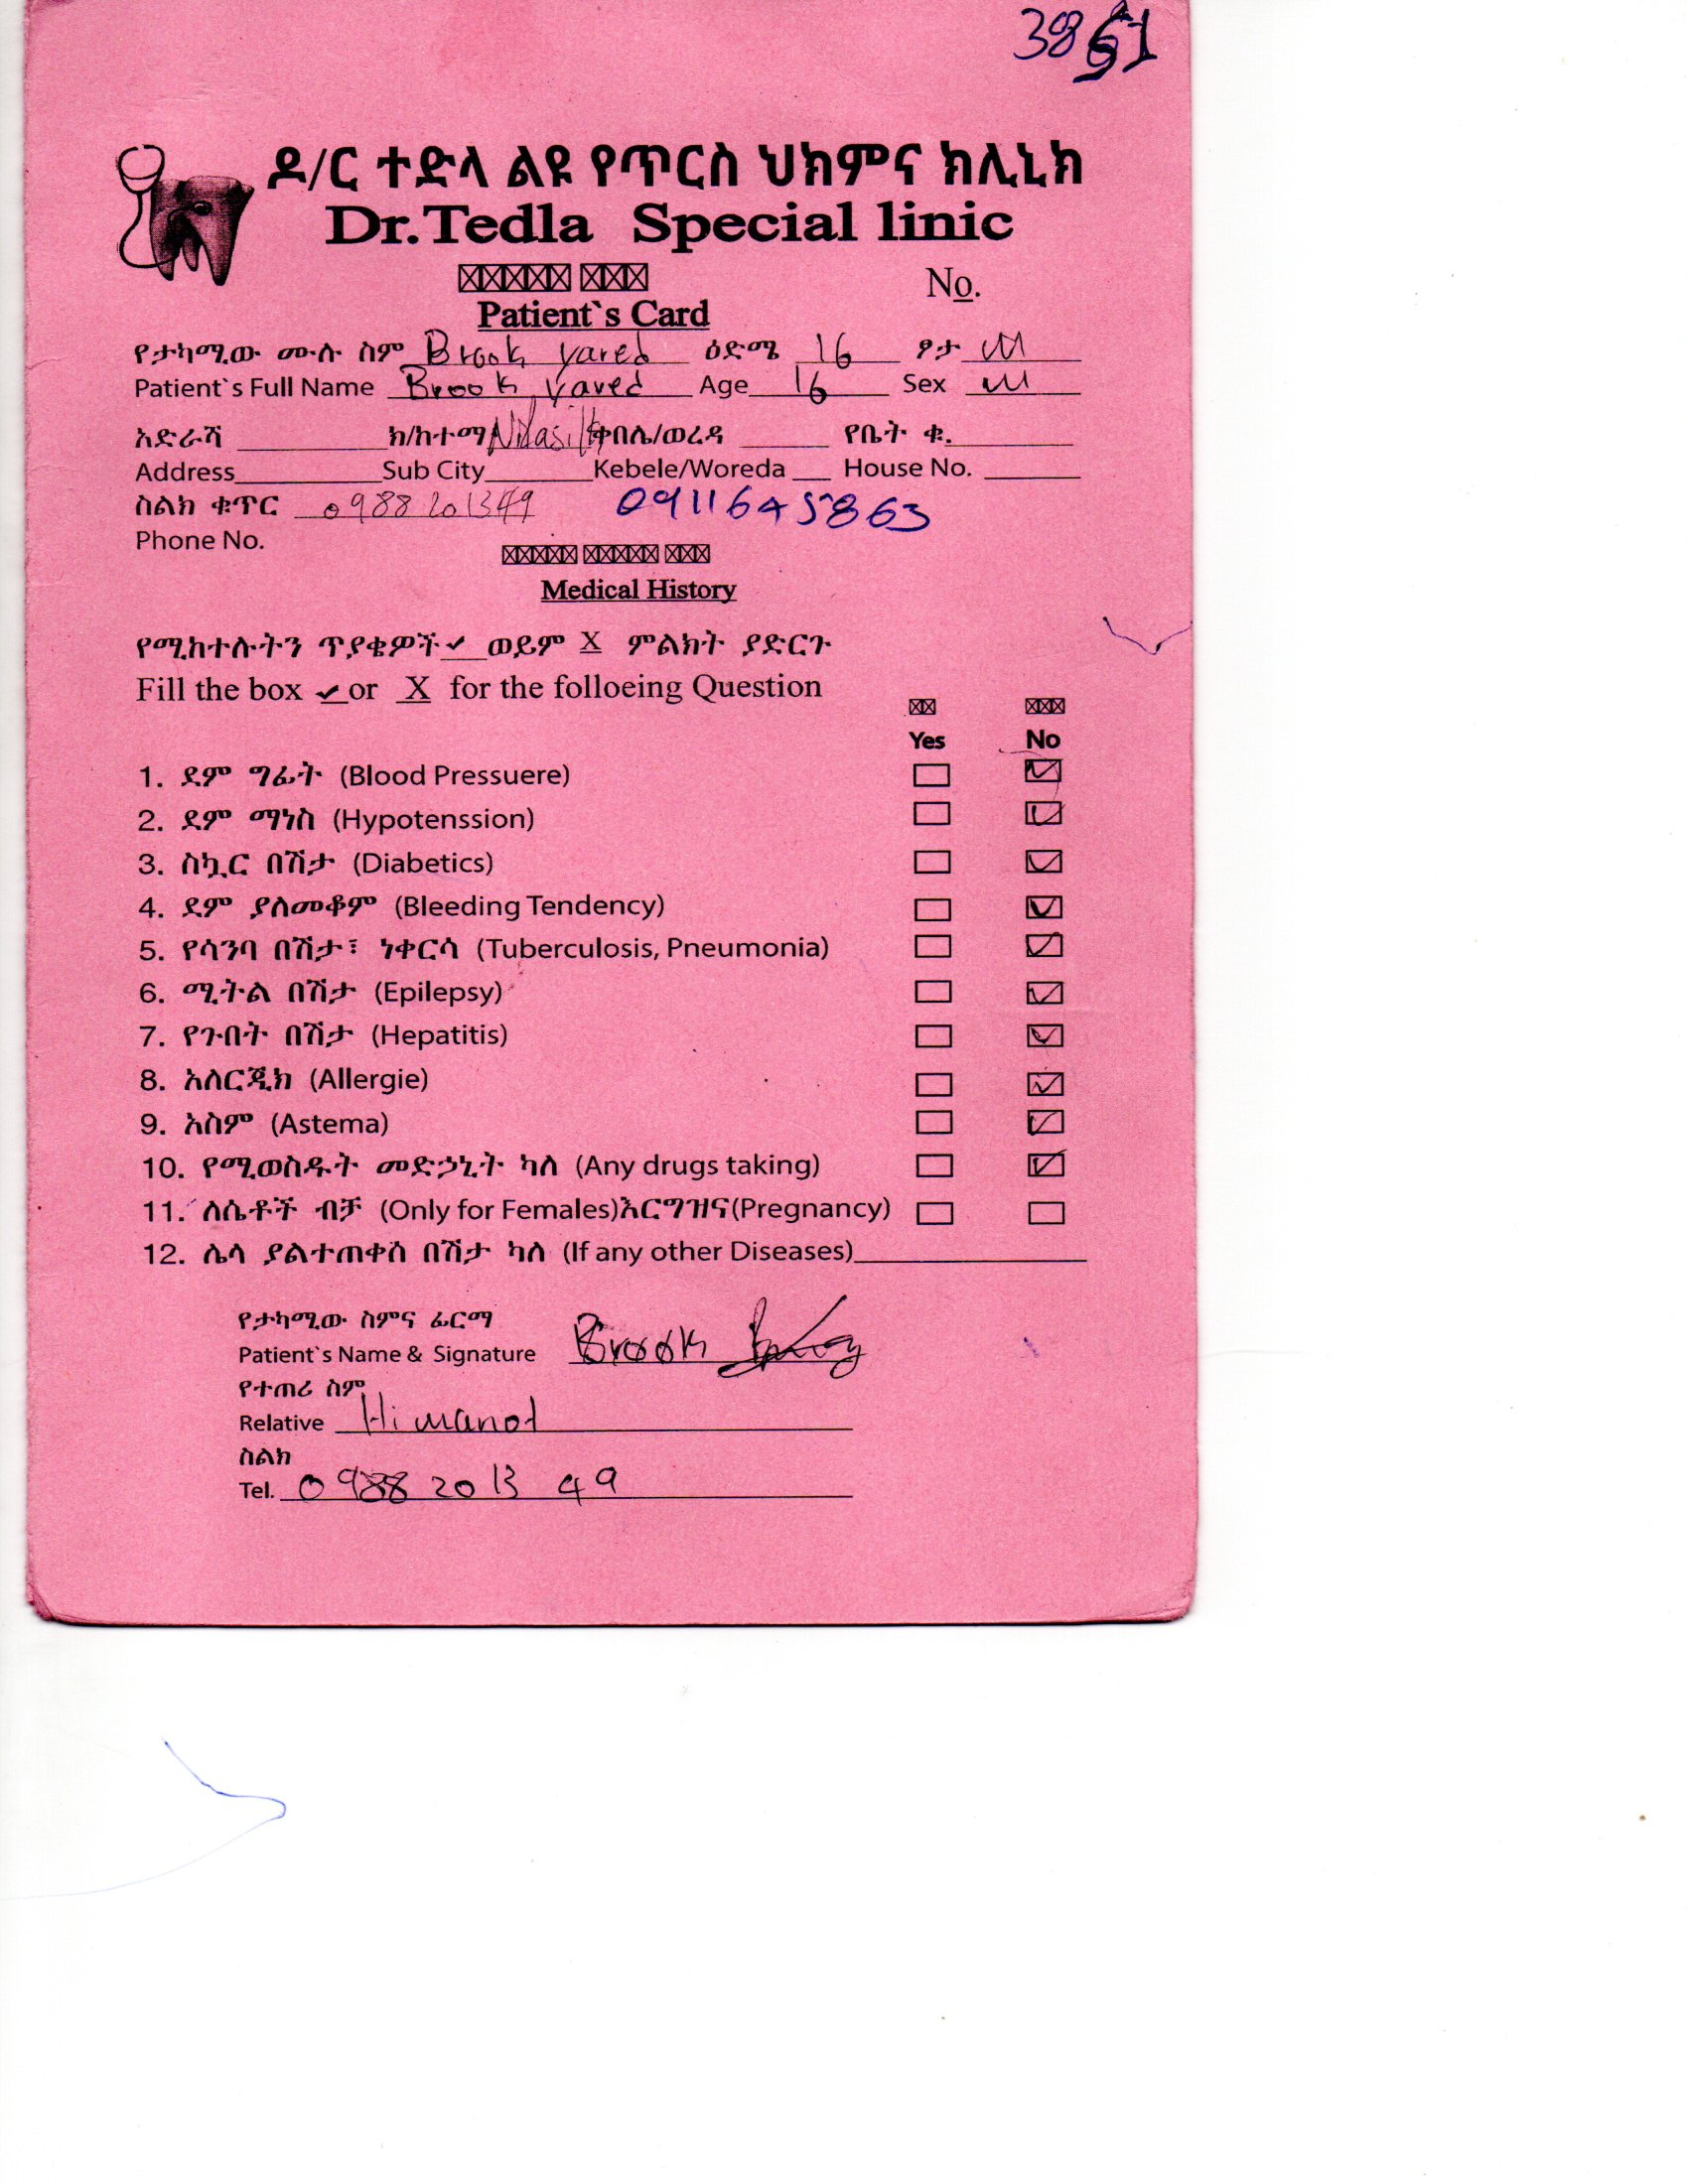 ዶ/ር ተድላ ልዩ የጥርስ ህክምና ክሊኒክ
Dr.Tedla Special linic
No.
Patient`s Card
የታካሚው ሙሉ ስም Brook yared ዕድሜ 16 ፆታ M
Patient`s Full Name Brook Yared Age 16 Sex M
አድራሻ ክ/ከተማ ቀበሌ/ወረዳ የቤት ቁ.
Address Sub City Kebele/Woreda House No.
ስልክ ቁጥር 0988201349 0911645863
Phone No.
Medical History
የሚከተሉትን ጥያቄዎች ✓ ወይም X ምልክት ያድርጉ
Fill the box ✓ or X for the folloeing Question
Yes No
1. ደም ግፊት (Blood Pressuere)
2. ደም ማነስ (Hypotenssion)
3. ስኳር በሽታ (Diabetics)
4. ደም ያለመቆም (Bleeding Tendency)
5. የሳንባ በሽታ፣ ነቀርሳ (Tuberculosis, Pneumonia)
6. ሚትል በሽታ (Epilepsy)
7. የጉበት በሽታ (Hepatitis)
8. አለርጂክ (Allergie)
9. አስም (Astema)
10. የሚወስዱት መድኃኒት ካለ (Any drugs taking)
11. ለሴቶች ብቻ (Only for Females)እርግዝና(Pregnancy)
12. ሌላ ያልተጠቀሰ በሽታ ካለ (If any other Diseases)
የታካሚው ስምና ፊርማ
Patient`s Name & Signature Brook
የተጠሪ ስም
Relative Himanot
ስልክ
Tel. 0988 20 13 49